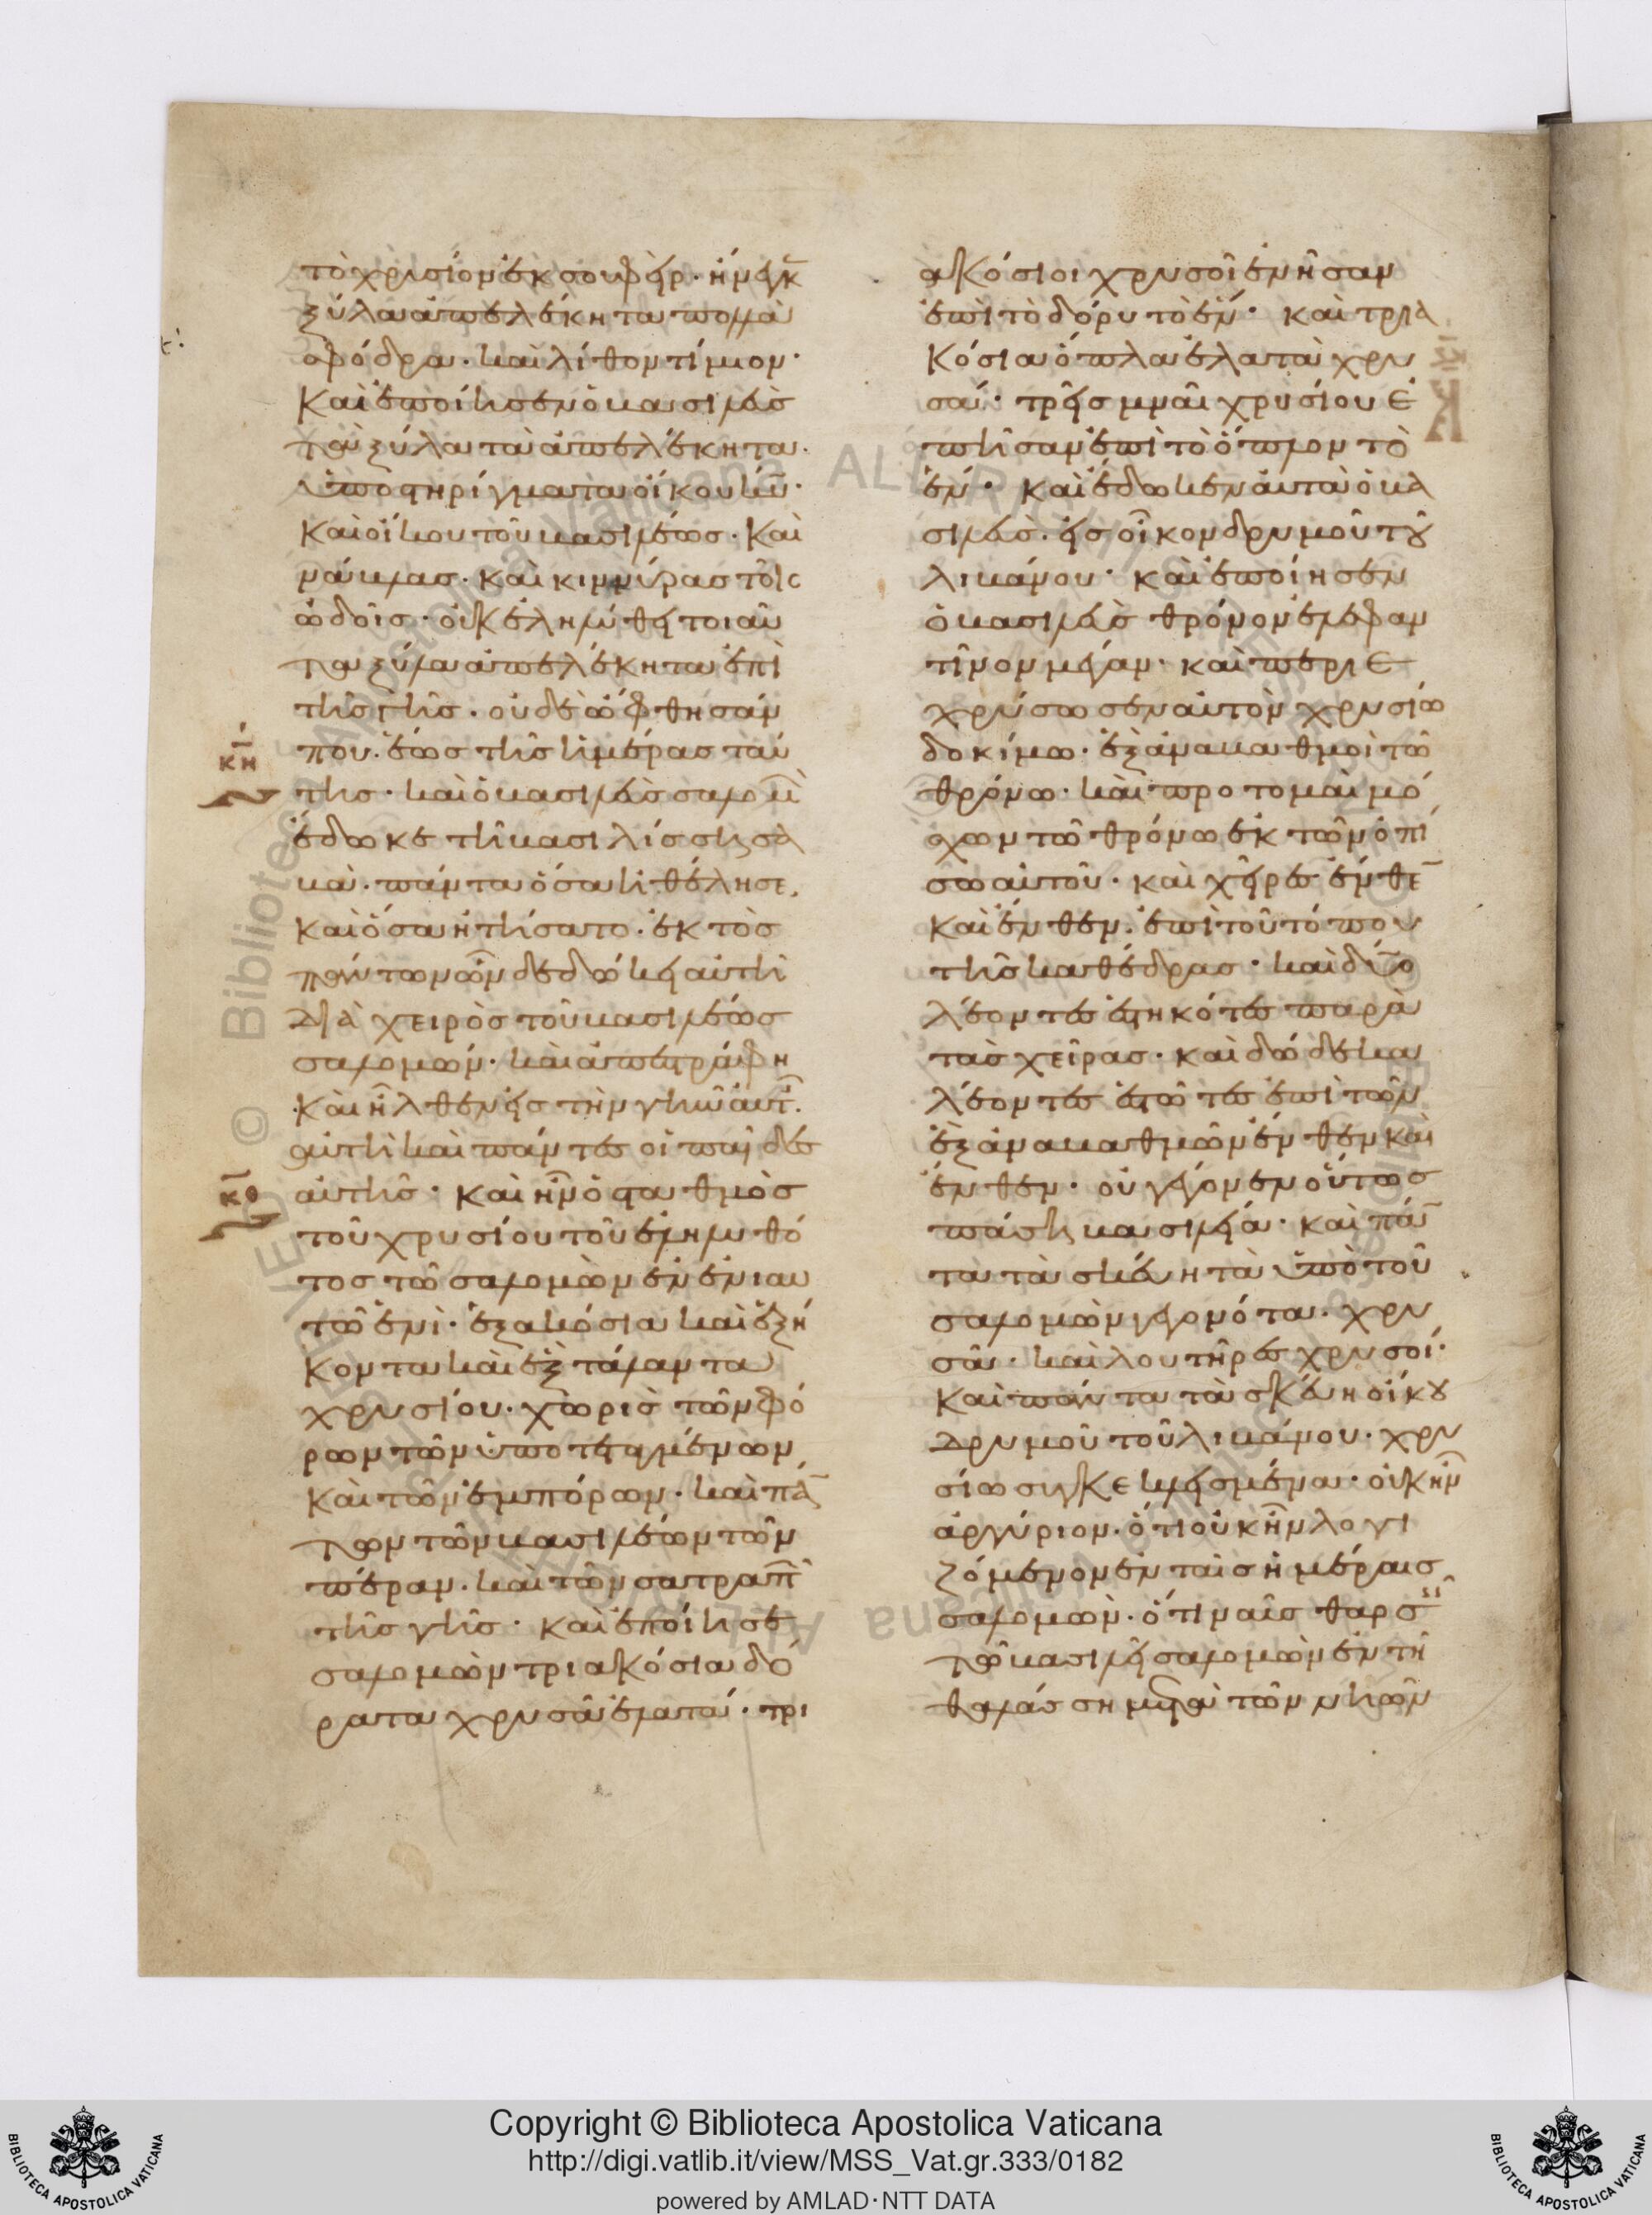 τὸ χρυσίον ἐκ σουφείρ· ἤνεγκ̅
ξύλα ἀπελέκητα πολλὰ
σφόδρα· καὶ λίθον τίμιον·
Καὶ ἐποίησεν ὁ βασιλεὺς
τὰ ξύλα τὰ ἀπελέκητα·
ὑποστηρίγματα οἴκου κῦ·
καὶ οἴκου τοῦ βασιλέως· καὶ
νάβλας· καὶ κιννύρας τοῖς
ὠδοῖς· οὐκ ἐληλύθει τοιαῦ
τα ξύλα ἀπελέκητα ἐπὶ
τῆς γῆς· οὐδὲ ὤφθησάν
που· ἕως τῆς ἡμέρας ταύ
της· καὶ ὁ βασιλεὺς σαλομὼ̅
ἔδωκε τῇ βασιλίσσῃ σα
βά· πάντα ὅσα ἠθέλησε,
καὶ ὅσα ἠτήσατο· ἐκτὸς
πάντων ὧν δεδώκει αὐτῆ
διὰ χειρὸς τοῦ βασιλέως
σαλομών· καὶ ἀπεστράφη
καὶ ἦλθεν εἰς τὴν γῆν αὐτ̅·
αὐτὴ καὶ πάντες οἱ παῖδες
αὐτῆς· καὶ ἦν ὁ σταθμὸς
τοῦ χρυσίου τοῦ ἐληλυθό
τος τῶ σαλομὼν ἐν ἐνιαυ
τῶ ἑνὶ· ἑξακόσια καὶ ἑξή
κοντα καὶ ἓξ τάλαντα
χρυσίου· χωρὶς τῶν φό
ρων τῶν ὑποτεταγμένων
καὶ τῶν ἐμπόρων· καὶ πά̅
των τῶν βασιλέων τῶν
πέραν· καὶ τῶν σατραπ̅
τῆς γῆς· καὶ ἐποίησε
σαλομὼν τριακόσια δό
ρατα χρυσᾶ ἐλατά· τρι
ακόσιοι χρυσοῖ ἐνῆσαν
ἐπὶ τὸ δόρυ τὸ ἕν· καὶ τρια
κόσια ὅπλα ἐλατὰ χρυ
σά· τρεῖς μναῖ χρυσίου ἐ
πῆσαν ἐπὶ τὸ ὅπλον τὸ
ἕν· καὶ ἔδωκεν αὐτὰ ὁ βα
σιλεὺς· εἰς οἶκον δρυμοῦ τοῦ
λιβάνου· καὶ ἐποίησεν
ὁ βασιλεὺς θρόνον ἐλεφαν
τῖνον μέγαν· καὶ περιε
χρύσωσεν αὐτὸν χρυσίω
δοκίμω· ἓξ ἀναβαθμοὶ τῶ
θρόνω· καὶ προτομαὶ μό
σχων τῶ θρόνω ἐκ τῶν ὀπί
σω αὐτοῦ· καὶ χεῖρες ἔνθε̅
καὶ ἔνθεν· ἐπὶ τοῦ τόπου
τῆς καθέδρας· καὶ δύο
λέοντες ἑστηκότες παρὰ
τὰς χεῖρας· καὶ δώδεκα
λέοντες ἑστῶτες ἐπὶ τῶν
ἓξ ἀναβαθμῶν ἔνθεν καὶ
ἔνθεν· οὐ γέγονεν οὕτως
πάσῃ βασιλεία· καὶ πάν̅
τα τὰ σκεύη τὰ ὑπὸ τοῦ
σαλομὼν γεγονότα· χρυ
σᾶ· καὶ λουτῆρες χρυσοί·
καὶ πάντα τὰ σκεύη οἴκου
δρυμοῦ τοῦ λιβάνου· χρυ
σίω συγκεκλεισμένα· οὐκ ἦν
ἀργύριον· ὅτι οὐκ ἦν λογι
ζόμενον ἐν ταῖς ἡμέραις
σαλομών· ὅτι ναῦς θαρσ̅
τῶ βασιλεῖ σαλομὼν ἐν τῆ
θαλάσση μετὰ τῶν νηῶν